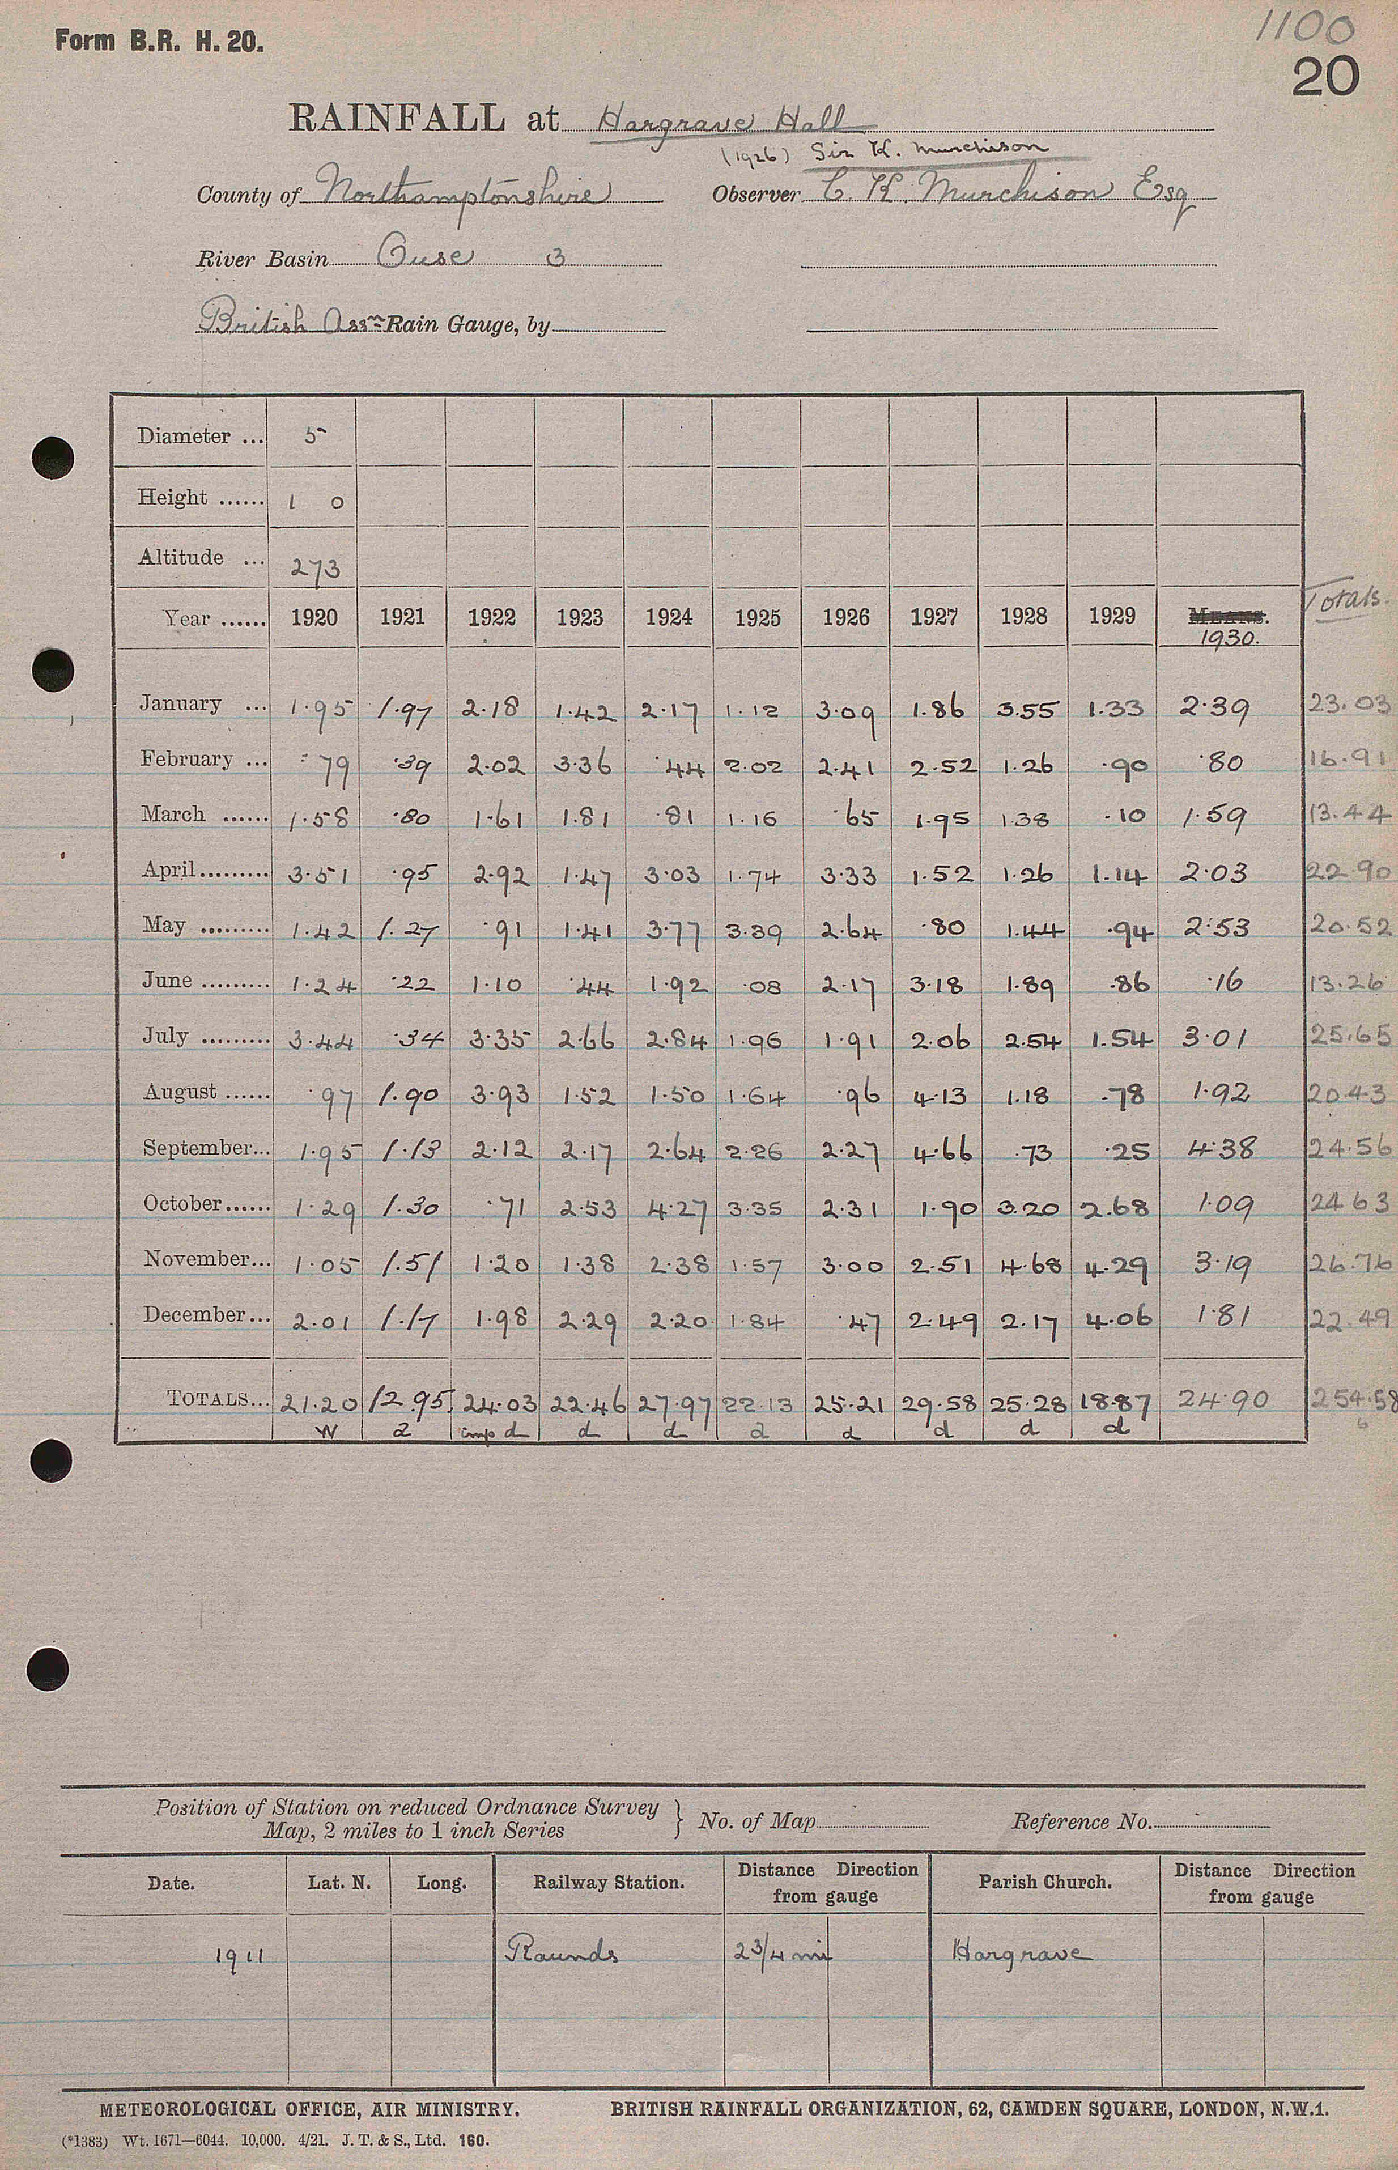 1100
Form B.R. H. 20.
20
RAINFALL at Hargrave Hall
(1926) Sir K. Murchison
County of Northamptonshire Observer C. K. Murchison Esq
River Basin Ouse 3
British Assn Rain Gauge, by
Diameter ... 5
Height ...... 1 0
Altitude ... 273
Year ...... 1920 1921 1922 1923 1924 1925 1926 1927 1928 1929 MEANS. Totals.
1930.
January ... 1.95 1.97 2.18 1.42 2.17 1.12 3.09 1.86 3.55 1.33 2.39 23.03
February ... .79 .39 2.02 3.36 .44 2.02 2.41 2.52 1.26 .90 .80 16.91
March ...... 1.58 .80 1.61 1.81 .81 1.16 .65 1.95 1.38 .10 1.59 13.44
April ......... 3.51 .95 2.92 1.47 3.03 1.74 3.33 1.52 1.26 1.14 2.03 22.90
May ......... 1.42 1.27 .91 1.41 3.77 3.39 2.64 .80 1.44 .94 2.53 20.52
June ......... 1.24 .22 1.10 .44 1.92 .08 2.17 3.18 1.89 .86 .16 13.26
July ......... 3.44 .34 3.35 2.66 2.84 1.96 1.91 2.06 2.54 1.54 3.01 25.65
August ...... .97 1.90 3.93 1.52 1.50 1.64 .96 4.13 1.18 .78 1.92 20.43
September... 1.95 1.13 2.12 2.17 2.64 2.26 2.27 4.66 .73 .25 4.38 24.56
October...... 1.29 1.30 .71 2.53 4.27 3.35 2.31 1.90 3.20 2.68 1.09 24.63
November... 1.05 1.51 1.20 1.38 2.38 1.57 3.00 2.51 4.68 4.29 3.19 26.76
December... 2.01 1.17 1.98 2.29 2.20 1.84 .47 2.49 2.17 4.06 1.81 22.49
TOTALS... 21.20 12.95 24.03 22.46 27.97 22.13 25.21 29.58 25.28 18.87 24.90 254.58
W d comp d d d d d d d d 6
Position of Station on reduced Ordnance Survey
Map, 2 miles to 1 inch Series } No. of Map Reference No.
Date. Lat. N. Long. Railway Station. Distance Direction from gauge Parish Church. Distance Direction from gauge
1911 Raunds 2 3/4 mi Hargrave
METEOROLOGICAL OFFICE, AIR MINISTRY. BRITISH RAINFALL ORGANIZATION, 62, CAMDEN SQUARE, LONDON, N.W.1.
(*1383) Wt. 1671—6044. 10,000. 4/21. J. T. & S., Ltd. 160.